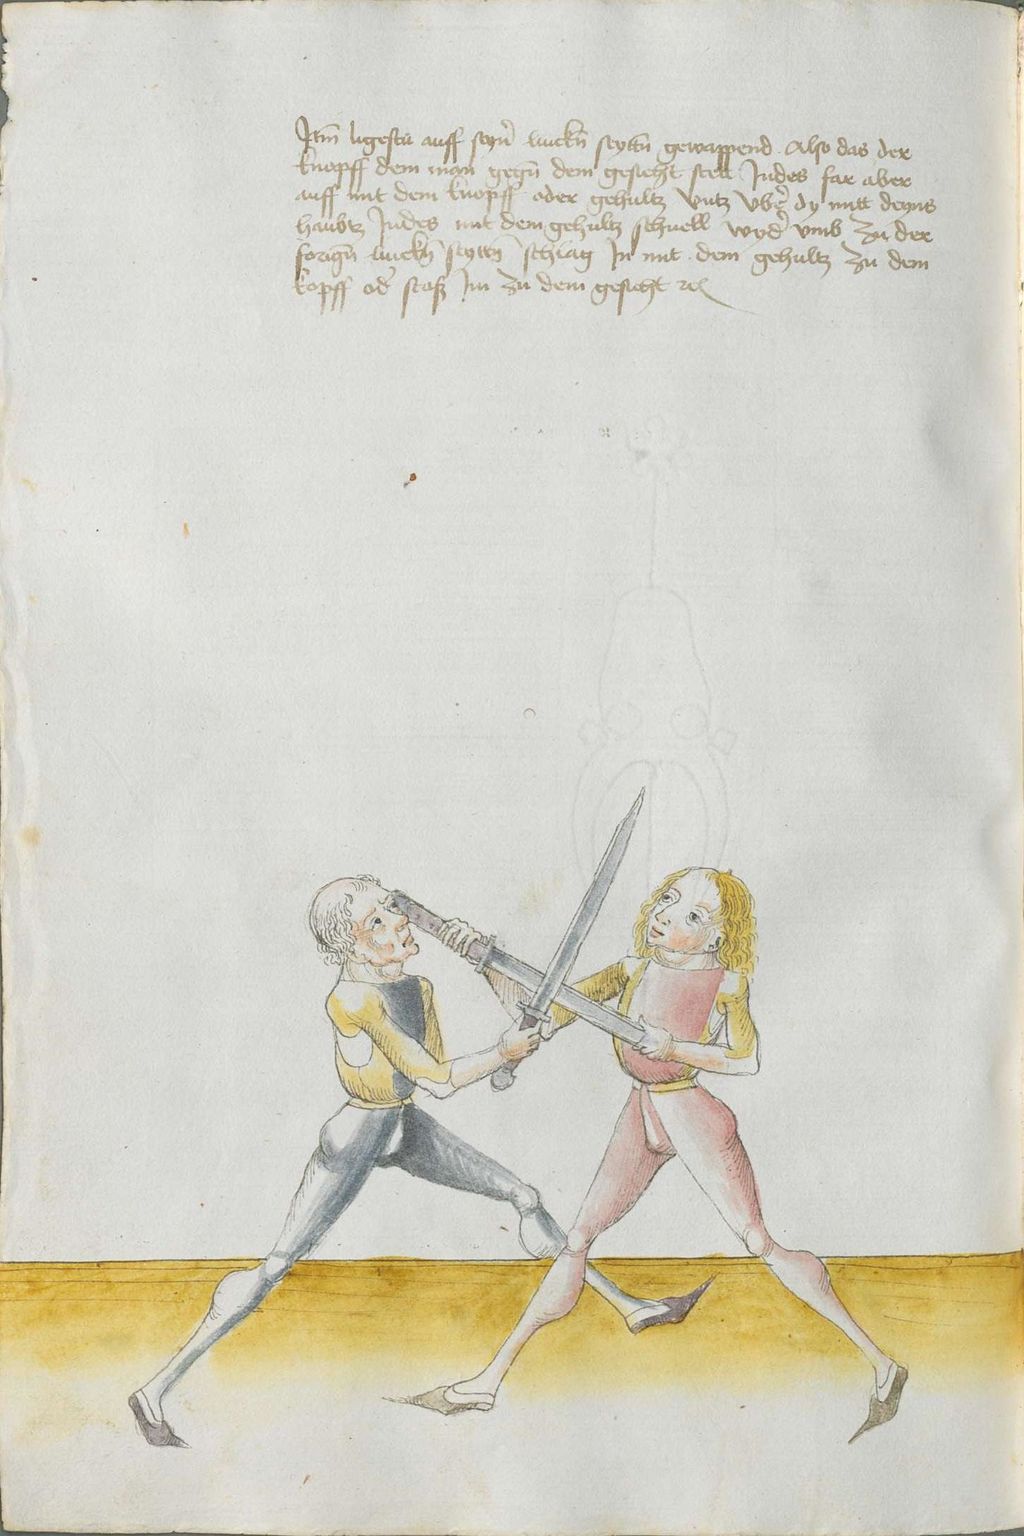 Itm ligestu auff seyn̄ linckn̄ seytn̄ gewappend Also das der
knopff dem man gegn̄ dem gesicht stett Indes far aber
auff mit dem knopff oder gehultz untz vbẽ dy mitt deyns
haubtz Indes mit dem gehultz schnell wyd̄ vmb zu der
forign̄ linckn̄ seyttn̄ schlag In mit dem gehultz zu dem
kopff od̄ stoß Im zu dem gesicht